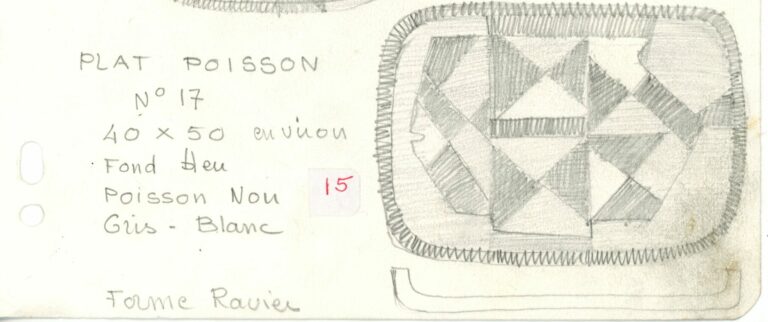 PLAT POISSON
N° 17
40 × 50 environ
Fond bleu
Poisson Noir
15
Gris - Blanc
Forme Ravier